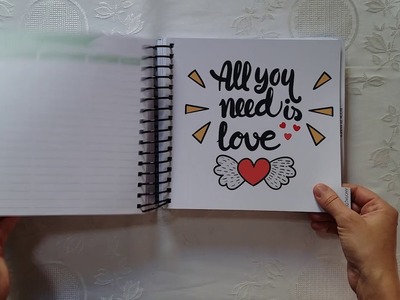 All you
need is
love